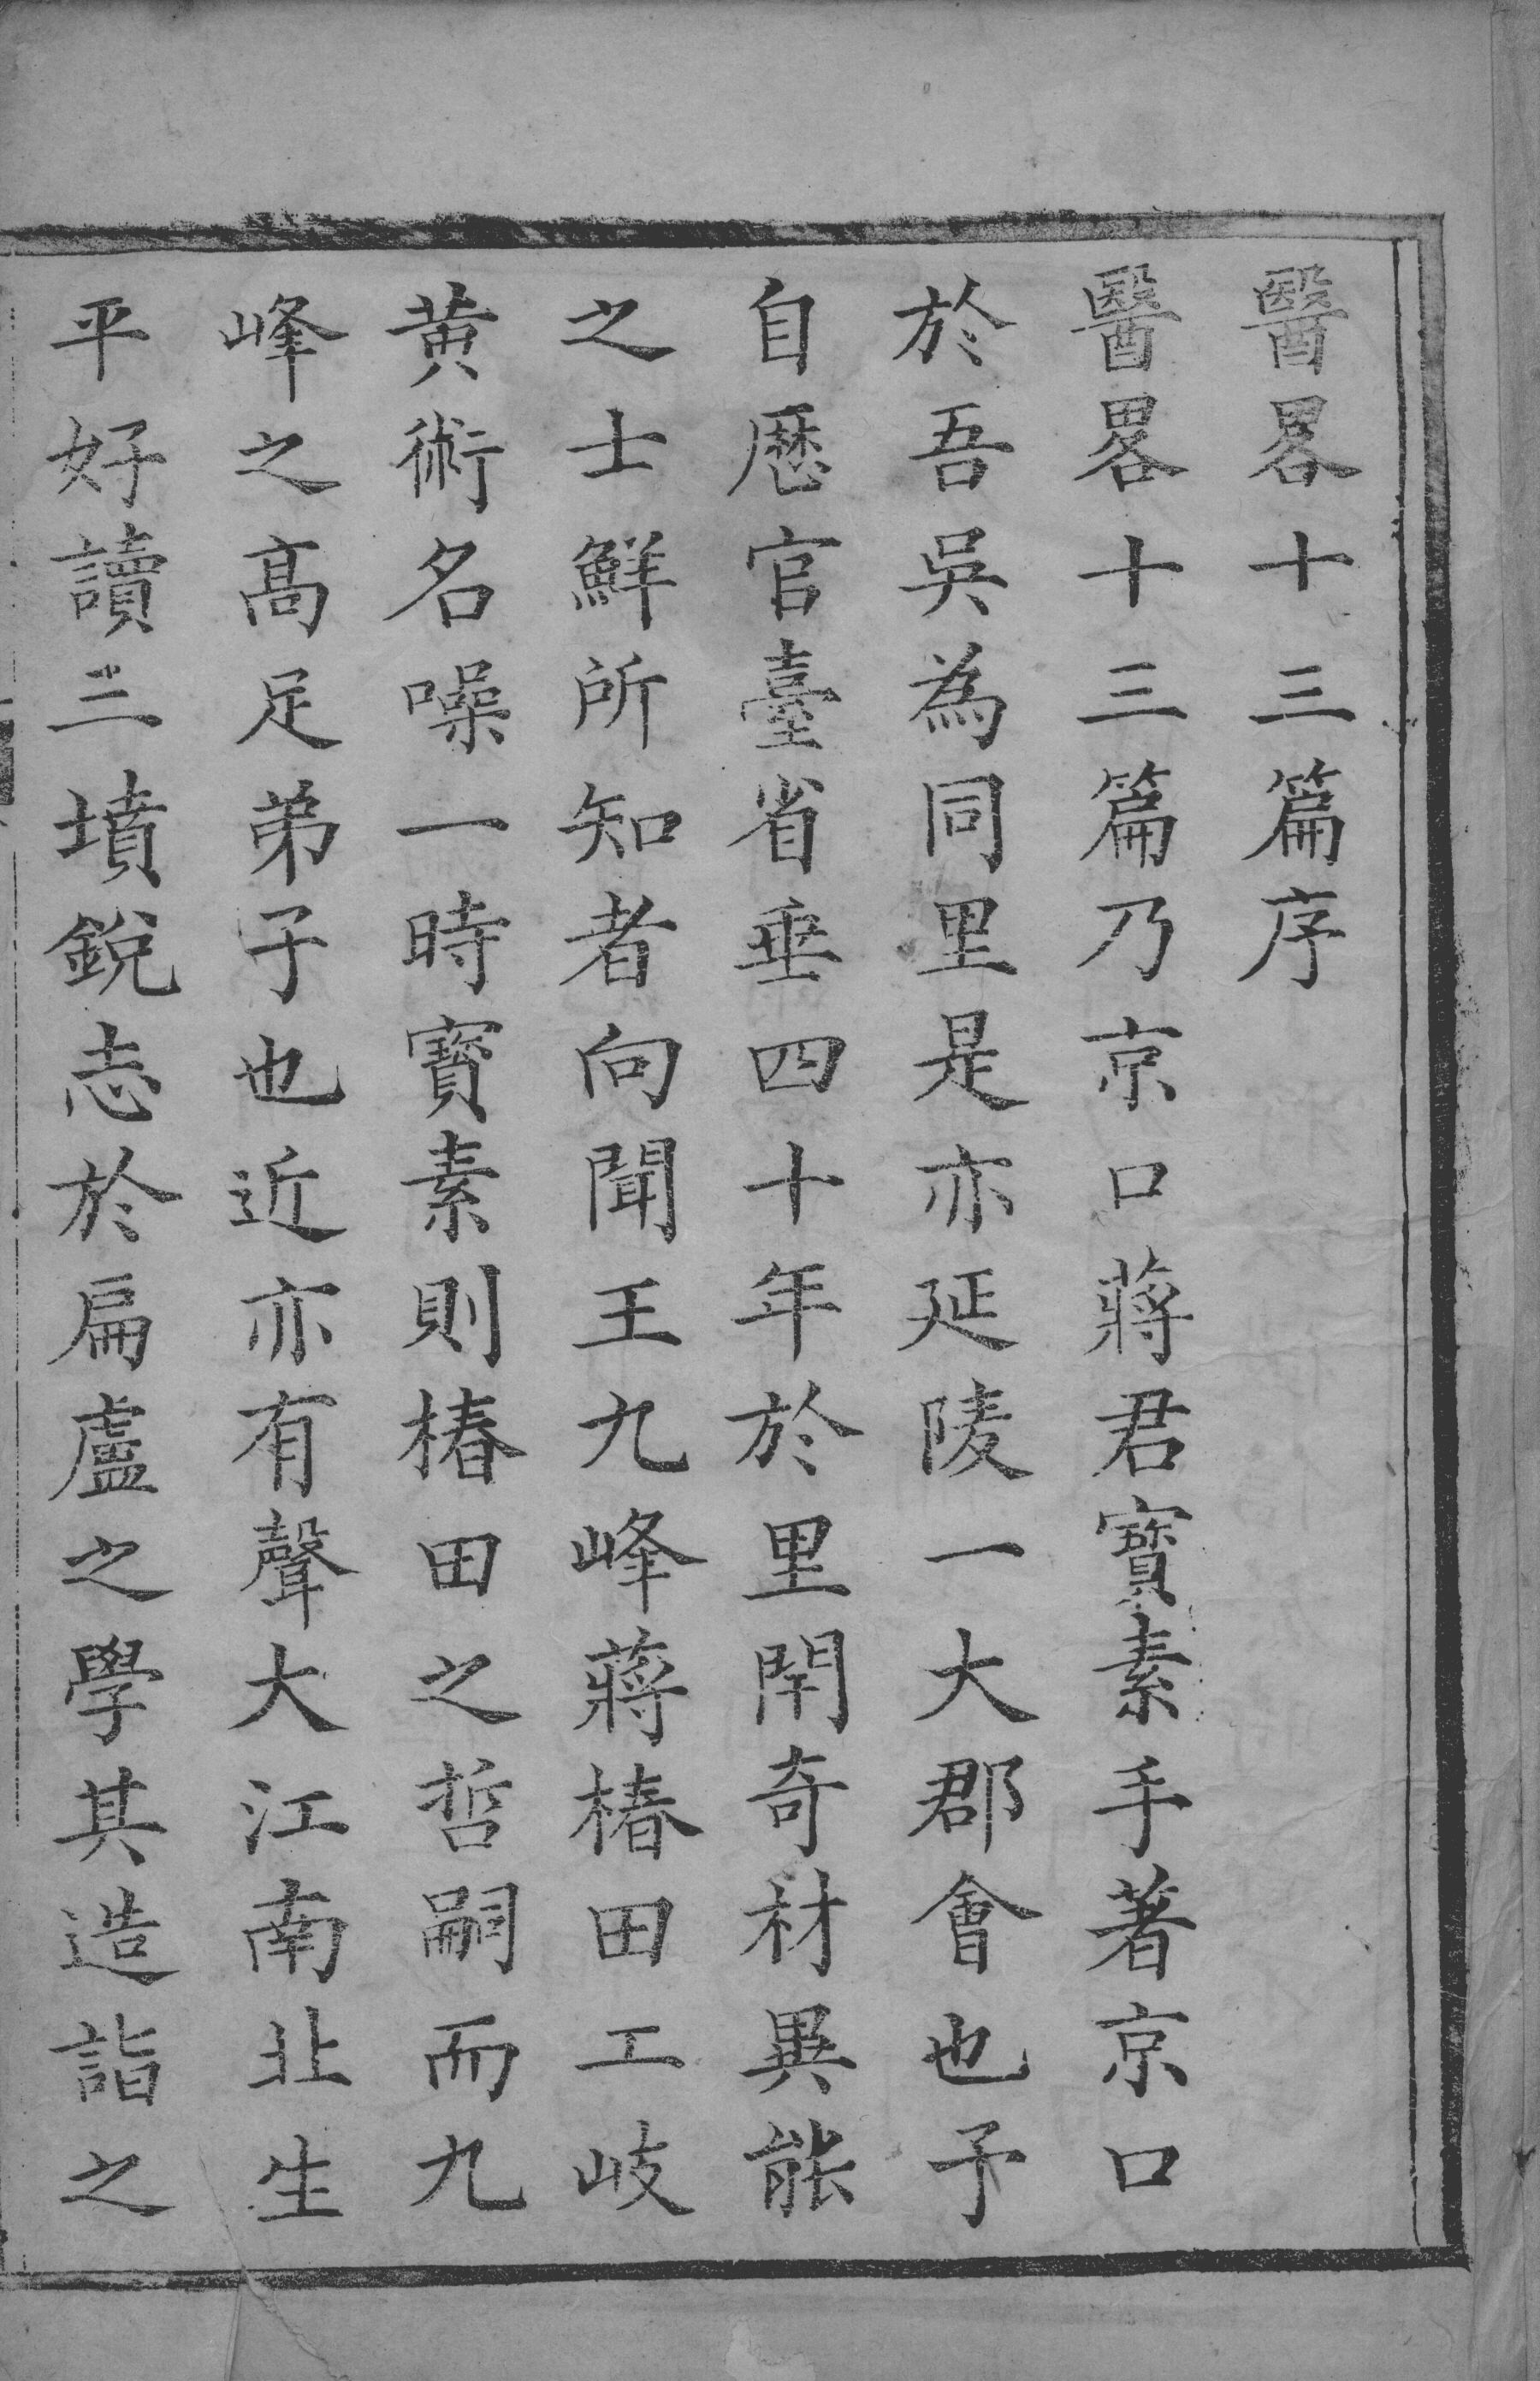 醫畧十三篇序
醫畧十三篇乃京口蔣君寶素手著京口
於吾吳為同里是亦延陵一大郡會也予
自歷官臺省垂四十年於里閈奇材異能
之士鮮所知者向聞王九峰蔣椿田工岐
黄術名噪一時寶素則椿田之哲嗣而九
峰之高足弟子也近亦有聲大江南北生
平好讀三墳銳志於扁盧之學其造詣之